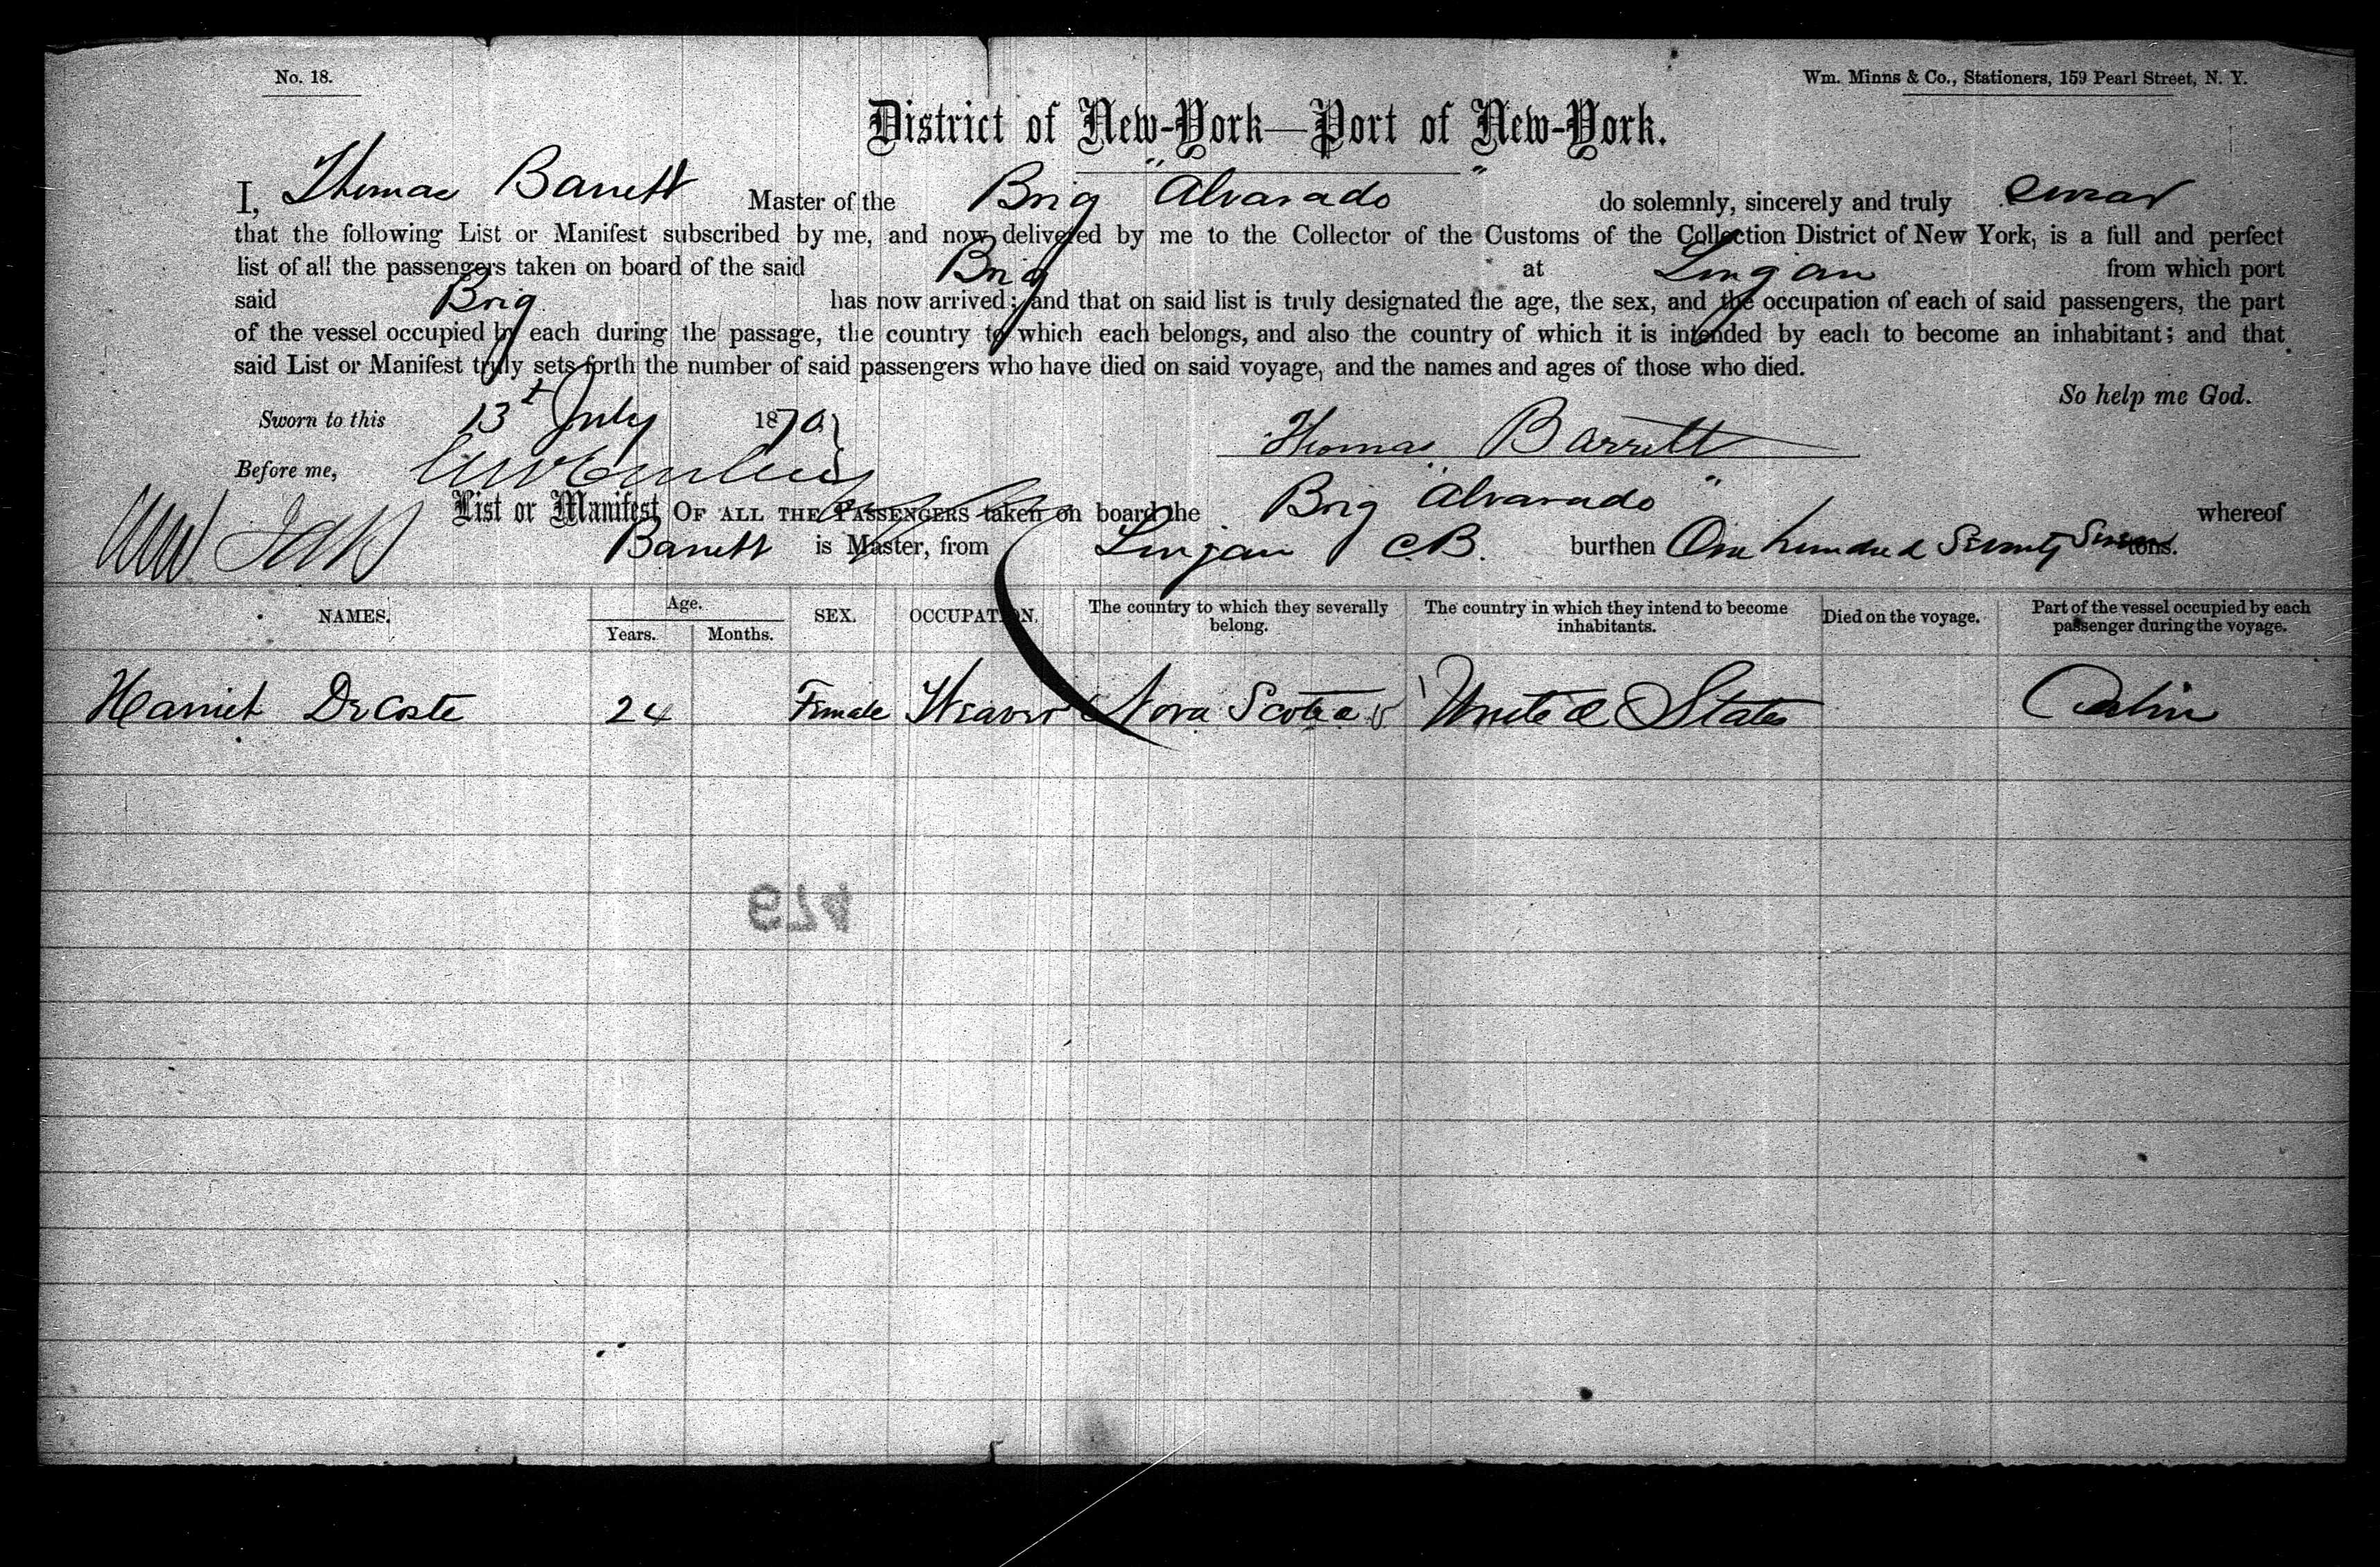 No. 18.
Wm. Minns & Co., Stationers, 159 Pearl Street, N. Y.
District of New-York—Port of New-York.
I, Thomas Barrett Master of the Brig "Alvarado" do solemnly, sincerely and truly swear
that the following List or Manifest subscribed by me, and now delivered by me to the Collector of the Customs of the Collection District of New York, is a full and perfect
list of all the passengers taken on board of the said Brig at Lingan from which port
said Brig has now arrived; and that on said list is truly designated the age, the sex, and the occupation of each of said passengers, the part
of the vessel occupied by each during the passage, the country to which each belongs, and also the country of which it is intended by each to become an inhabitant; and that
said List or Manifest truly sets forth the number of said passengers who have died on said voyage, and the names and ages of those who died.
So help me God.
Sworn to this 13t July 1870
Thomas Barrett
Before me,
List or Manifest OF ALL THE PASSENGERS taken on board the Brig "Alvarado" whereof
Barrett is Master, from Lingan C.B. burthen One hundred Seventy Seven tons.
NAMES. Age. Years. Months. SEX. OCCUPATION. The country to which they severally belong. The country in which they intend to become inhabitants. Died on the voyage. Part of the vessel occupied by each passenger during the voyage.
Harriet DeCoste 24 Female Weaver Nova Scotia United States Cabin
674